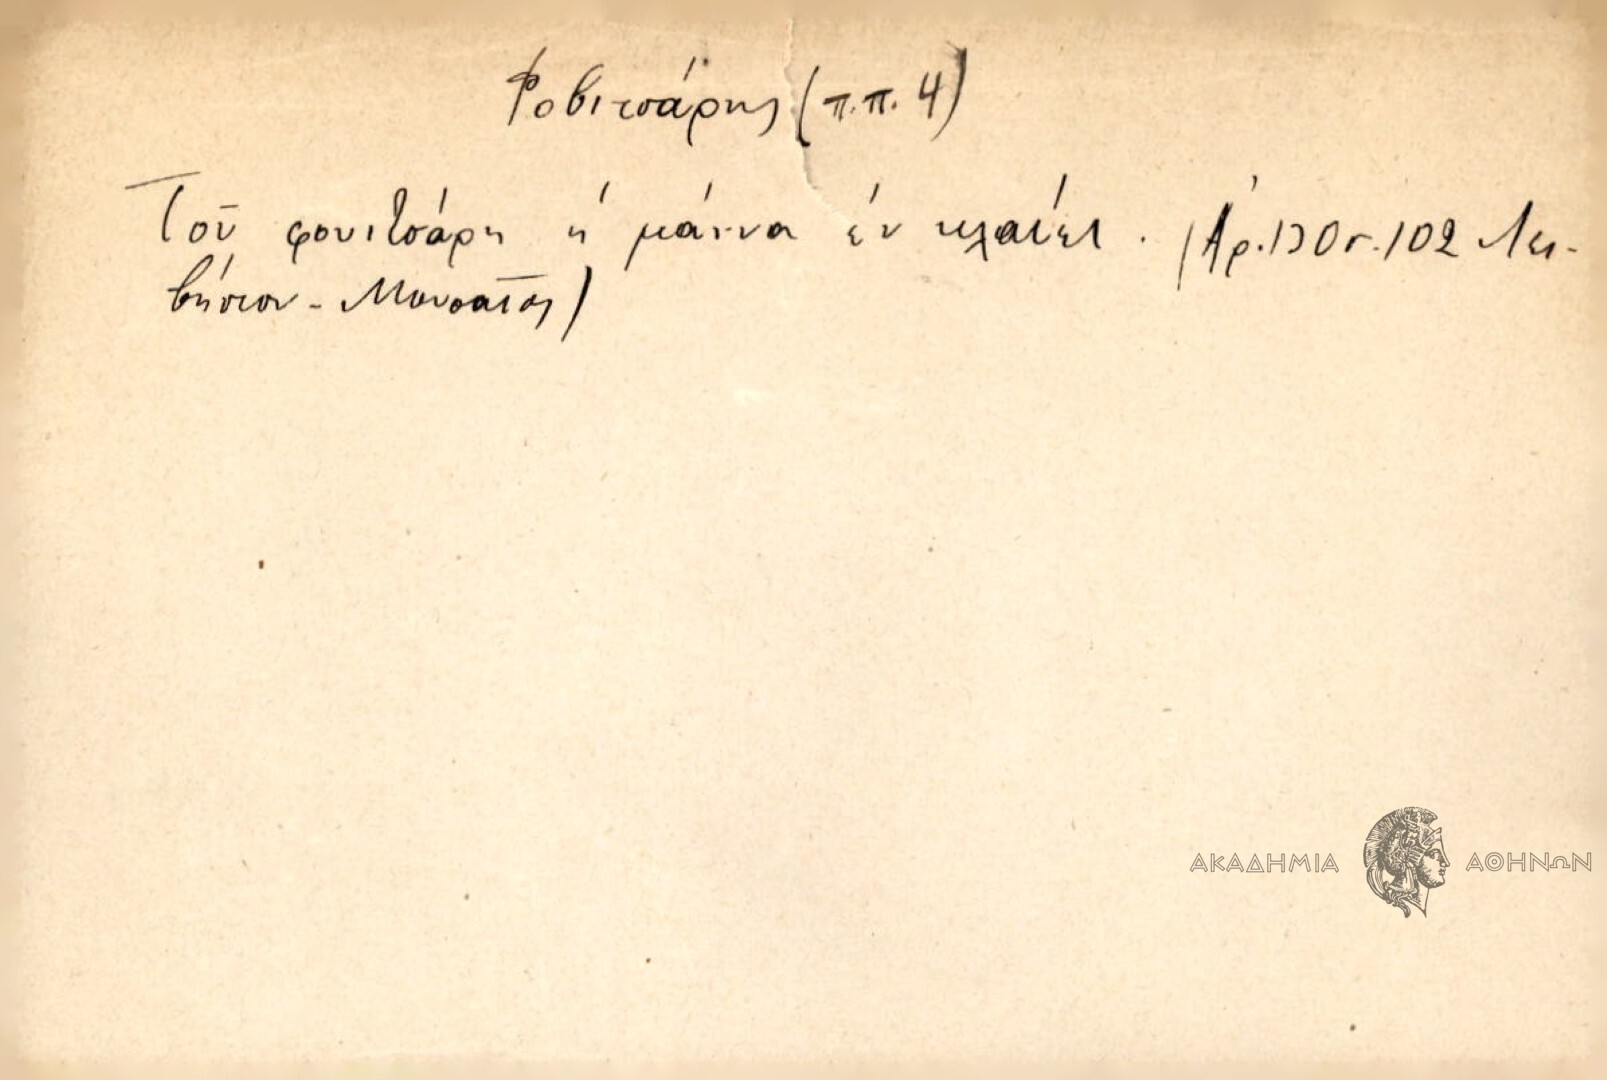 Φοβιτσάρης (π.π. 4)
Τοῦ φουιτσάρη ἡ μάννα ἐν κλαίει. (Ἀρ. 130 σ. 102 Λει-
βήσιον - Μουσαῖος)
ΑΚΑΔΗΜΙΑ ΑΘΗΝΩΝ